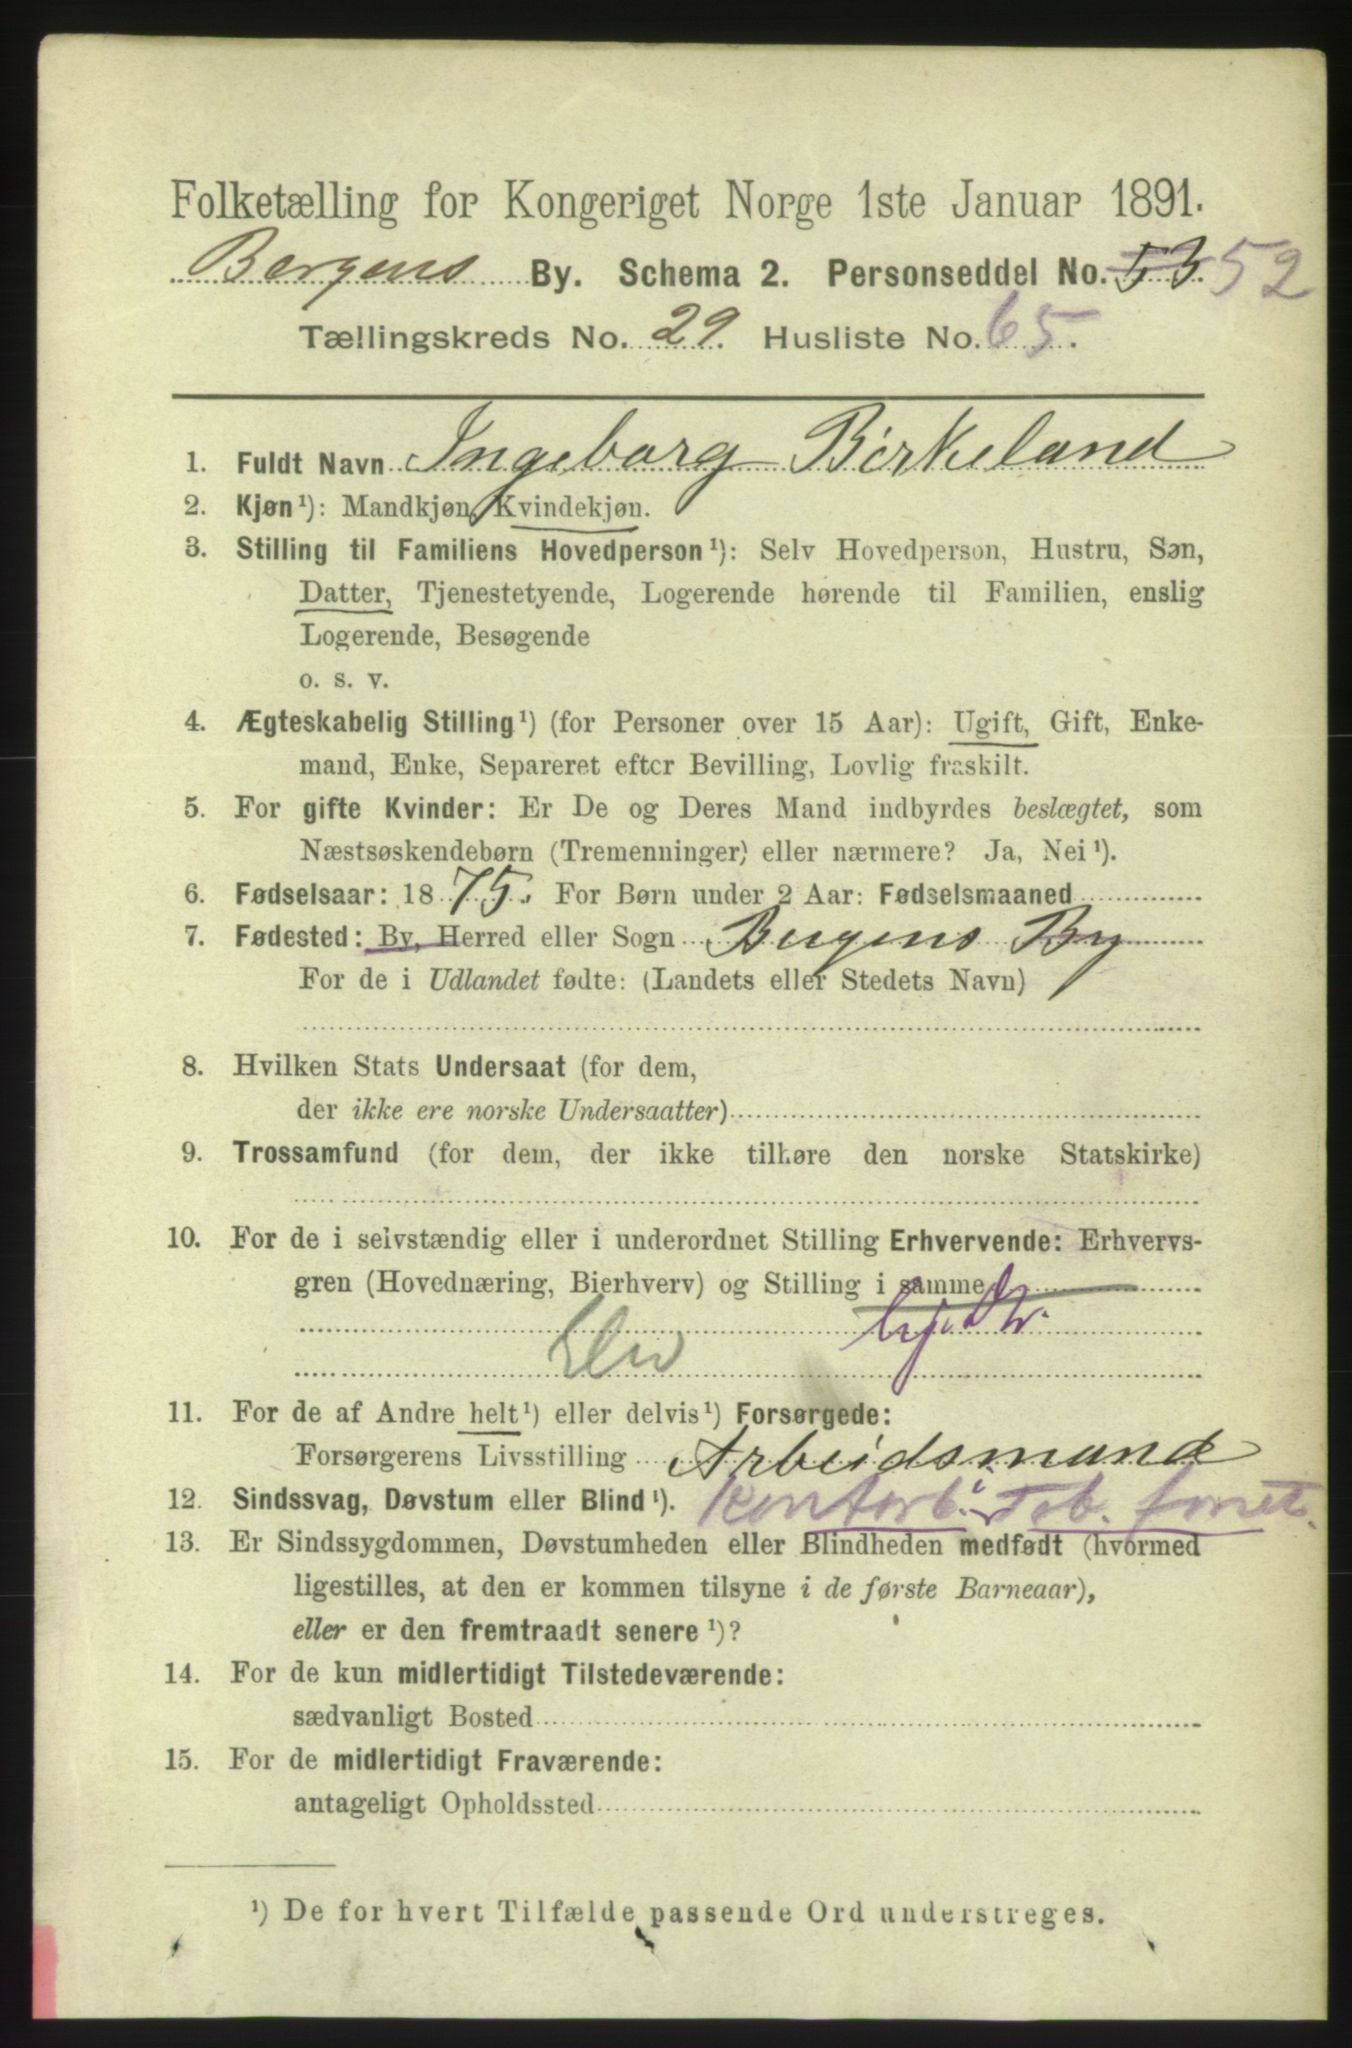 Folketælling for Kongeriget Norge 1ste Januar 1891.
Bergens By. Schema 2. Personseddel No. 53 52
Tællingskreds No. 29. Husliste No. 65.
1. Fuldt Navn Ingeborg Birkeland
2. Kjøn¹): Mandkjøn, Kvindekjøn.
3. Stilling til Familiens Hovedperson¹): Selv Hovedperson, Hustru, Søn,
Datter, Tjenestetyende, Logerende hørende til Familien, enslig
Logerende, Besøgende
o. s. v.
4. Ægteskabelig Stilling¹) (for Personer over 15 Aar): Ugift, Gift, Enke-
mand, Enke, Separeret efter Bevilling, Lovlig fraskilt.
5. For gifte Kvinder: Er De og Deres Mand indbyrdes beslægtet, som
Næstsøskendebørn (Tremenninger) eller nærmere? Ja, Nei¹).
6. Fødselsaar: 1875. For Børn under 2 Aar: Fødselsmaaned
7. Fødested: By, Herred eller Sogn Bergens By
For de i Udlandet fødte: (Landets eller Stedets Navn)
8. Hvilken Stats Undersaat (for dem,
der ikke ere norske Undersaatter)
9. Trossamfund (for dem, der ikke tilhøre den norske Statskirke)
10. For de i selvstændig eller i underordnet Stilling Erhvervende: Erhvervs-
gren (Hovednæring, Bierhverv) og Stilling i samme
11. For de af Andre helt¹) eller delvis¹) Forsørgede:
Forsørgerens Livsstilling Arbeidsmand
12. Sindssvag, Døvstum eller Blind¹).
13. Er Sindssygdommen, Døvstumheden eller Blindheden medfødt (hvormed
ligestilles, at den er kommen tilsyne i de første Barneaar),
eller er den fremtraadt senere¹)?
14. For de kun midlertidigt Tilstedeværende:
sædvanligt Bosted
15. For de midlertidigt Fraværende:
antageligt Opholdssted
¹) De for hvert Tilfælde passende Ord understreges.